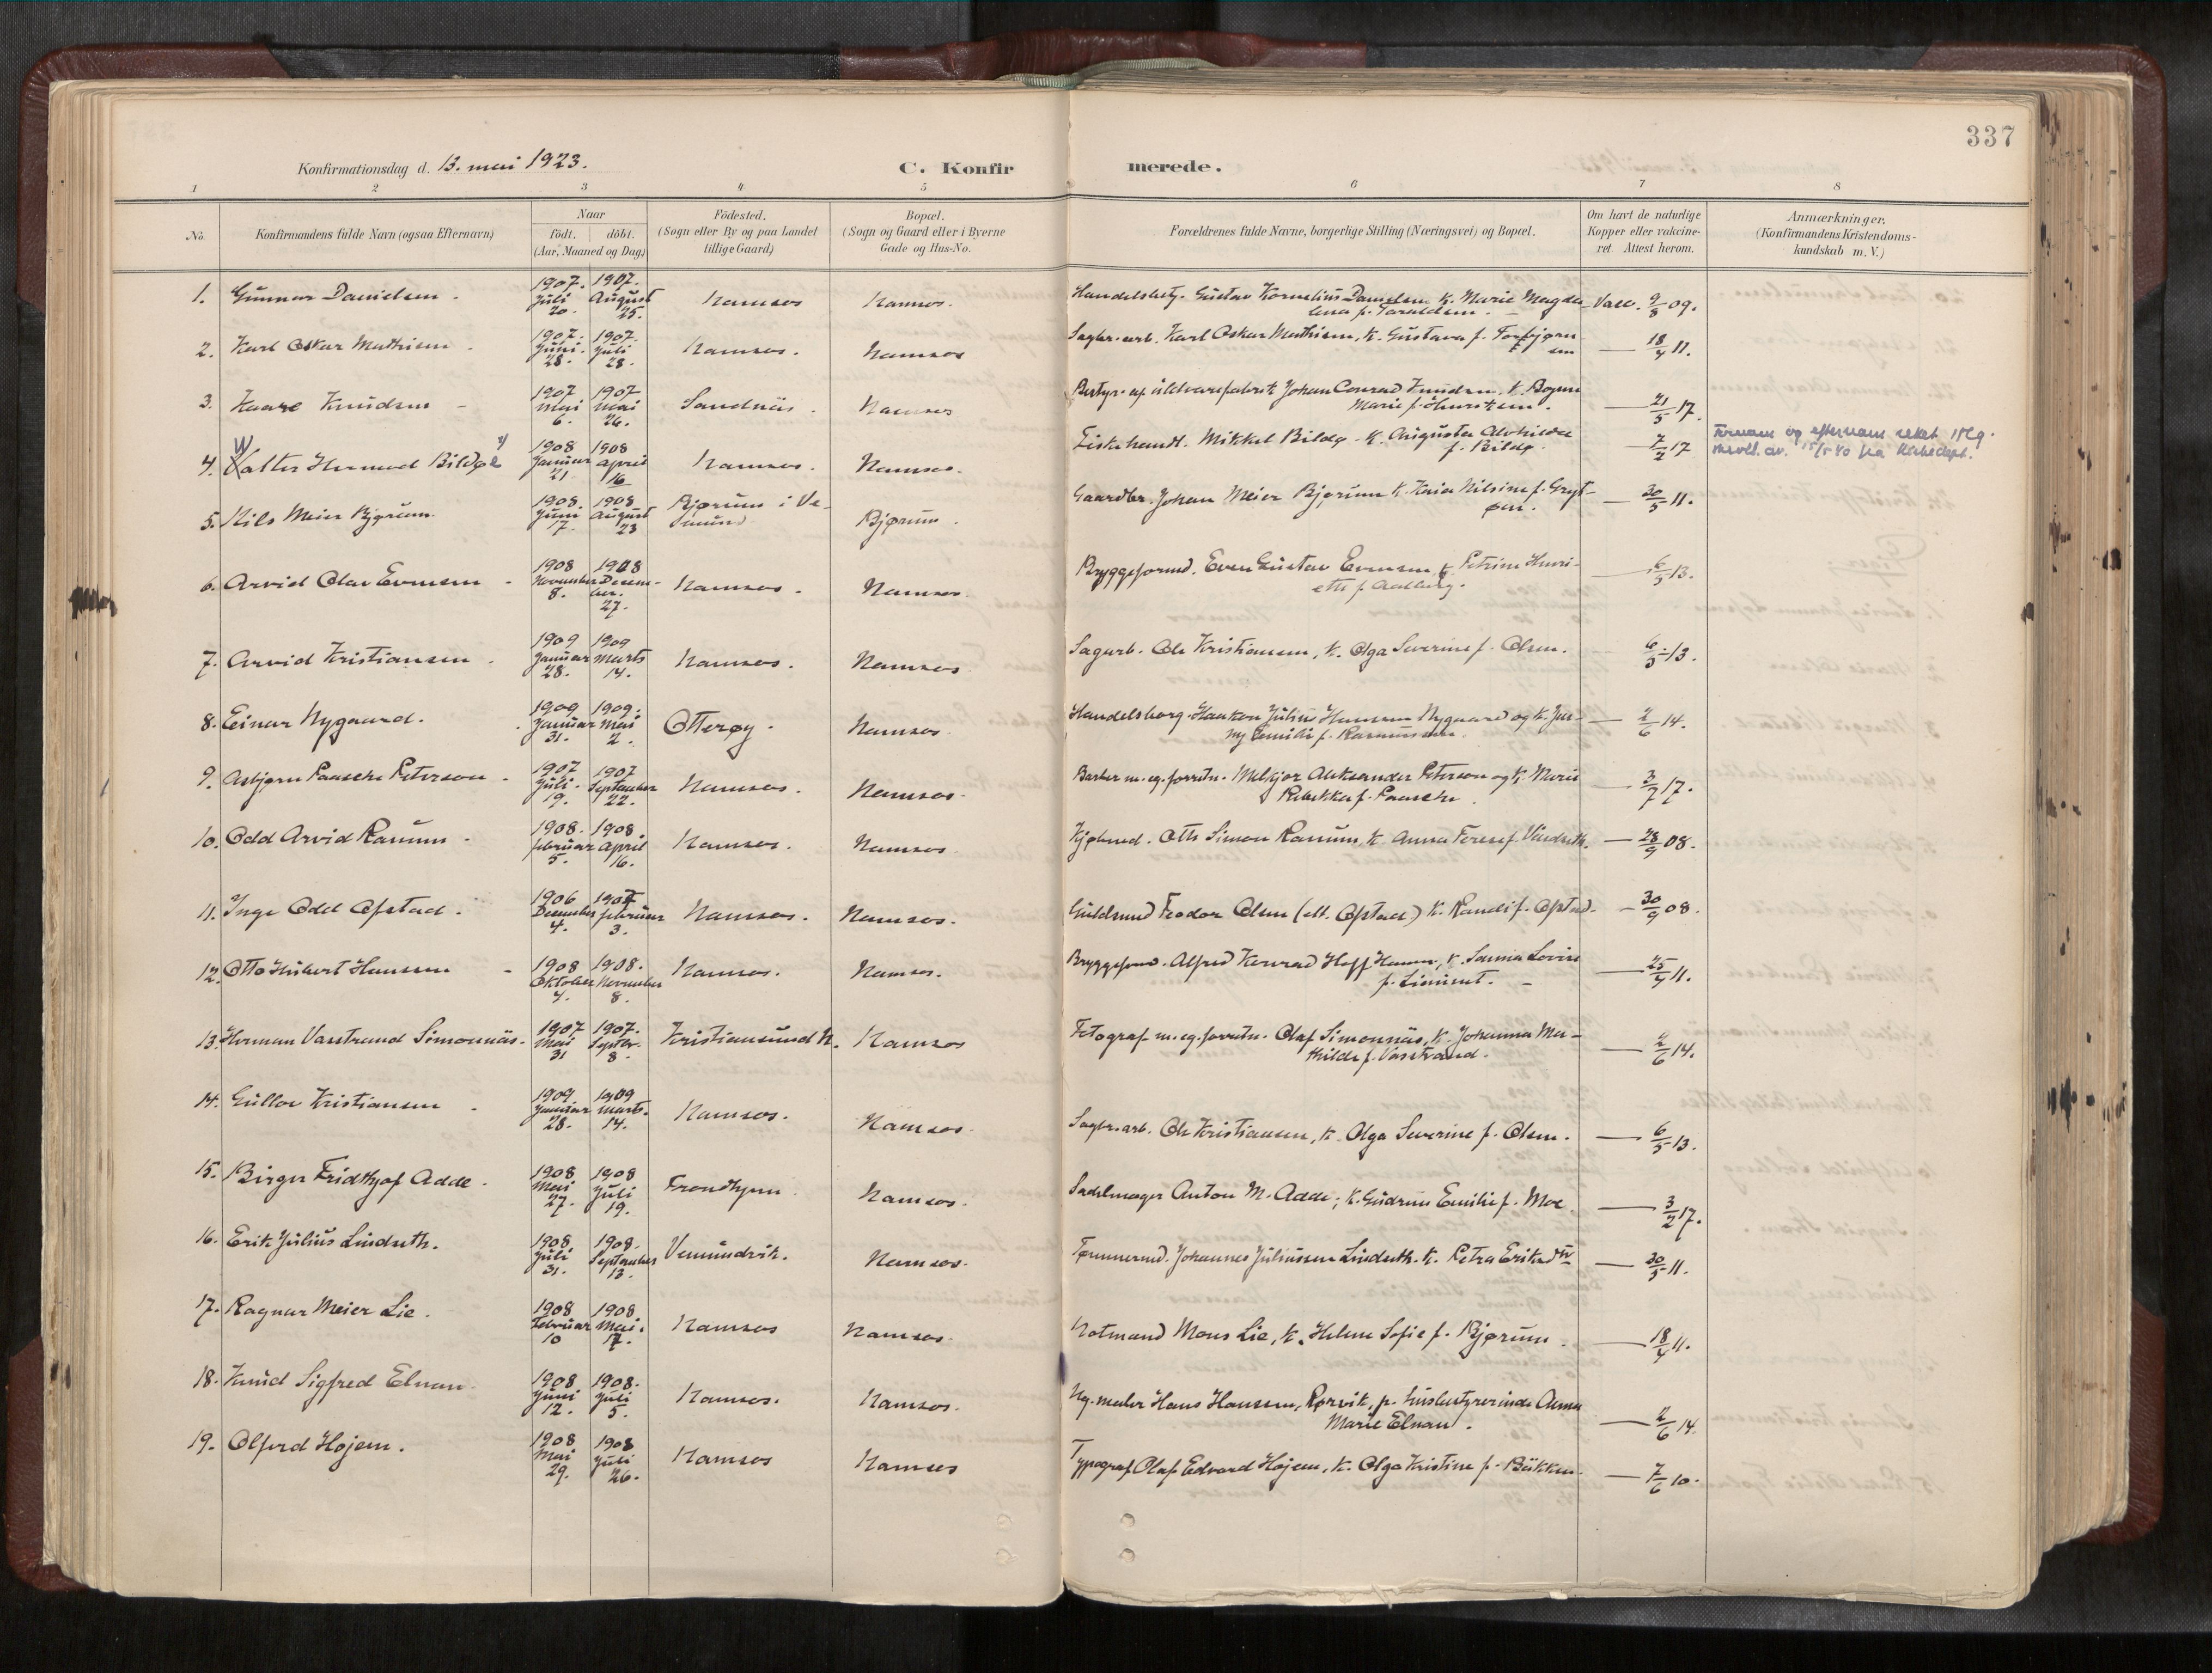 337
Konfirmationsdag d. 13. mai 1923.
C. Konfirmerede.
1 2 3 4 5 6 7 8
No.
Konfirmandens fulde Navn (ogsaa Efternavn)
Naar
födt. döbt.
(Aar, Maaned og Dag)
Födested.
(Sogn eller By og paa Landet
tillige Gaard)
Bopæl.
(Sogn og Gaard eller i Byerne
Gade og Hus-No.
Forældrenes fulde Navne, borgerlige Stilling (Næringsvei) og Bopæl.
Om havt de naturlige
Kopper eller vakcine-
ret. Attest herom.
Anmærkninger.
(Konfirmandens Kristendoms-
kundskab m. V.)
1. Gunnar Danielsen. 1907. Juli 20. 1907. August 25. Namsos Namsos. Handelsbety. Gustav Kornelius Danielsen k. Marie Magda-
lena f. Taraldsen. Vacc. 9/8 09.
2. Karl Oskar Mathisen 1907. Juni. 28. 1907. Juli 28. Namsos. Namsos Sagbr. arb. Karl Oskar Mathisen, k. Gustava f. Torbjørn
sen — 18/4 11.
3. Kaare Knudsen 1907 Mai 6. 1907 Mai 26. Sandnäs. Namsos Bestyr. af uldvarefabrik Johan Conrad Knudsen, k. Dagne
Marie f. Henriksen. — 21/5 17.
4. Walter Hermod Bildøe 1908 Januar 21 1908 April 16 Namsos. Namsos. Fiskehandl. Mikkal Bildø k. Augusta Alvhilda
f. Bildø. — 7/2 17 Fornavn og efternavn rettet iflg.
skr. av 15/5 40 fra Kirkedept.
5. Nils Meier Bjørum 1908. Juni 17. 1908. August 23 Bjørum i Ve-
mund Bjørum. Gaardbr. Johan Meier Bjørum k. Kaia Nilsine f. Gryt-
øen. — 30/5 11.
6. Arvid Olav Evensen 1908 November 8. 1908 Decem-
ber. 27. Namsos. Namsos. Bryggeformd. Even Gustav Evensen k. Petrine Henri-
ette f. Aalberg. 6/5 13.
7. Arvid Kristiansen 1909 Januar 28. 1909 Marts 14. Namsos. Namsos Sagarb. Ole Kristiansen, k. Olga Severine f. Olsen. 6/5 13.
8. Einar Nygaard. 1909 Januar 31. 1909. Mai 2. Otterøy. Namsos Handelsborg. Haakon Julius Hansen Nygaard og k. Jen-
ny Emilie f. Rasmussen. — 2/6 14.
9. Asbjørn Paasche Peterson 1907 Juli. 19. 1907 September 22. Namsos. Namsos. Barber m. eg. forretn. Melkjor Aleksander Peterson og k. Marie
Rebekka f. Paasche. — 3/7 17.
10. Odd Arvid Ranum 1908. Februar 5. 1908. April 16. Namsos. Namsos Kjøbmd. Otto Simon Ranum, k. Anna Terese f. Vinduth. — 28/9 08.
11. Inge Odd Opstad. 1906 December 4. 1907 Februar 3. Namsos. Namsos. Guldsmd Teodor Olsen (elt. Opstad) k. Randi f. Opstad — 30/9 08.
12. Otto Hubert Hansen 1908 Oktober 4. 1908. November 8. Namsos. Namsos. Bryggeformd. Alfred Konrad Hoff Hansen, k. Sanna Lovise
f. Liaunet. — 25/4 11.
13. Herman Vasstrand Simonnäs. 1907 Mai 31 1907. Septbr. 8. Kristiansund N. Namsos Fotograf m. eg. forretn. Olaf Simonnäs, k. Johanna Ma-
thilde f. Vasstrand. — 2/6 14.
14. Gullov Kristiansen 1909. Januar 28. 1909 Marts. 14. Namsos. Namsos. Sagbr. arb. Ole Kristiansen, k. Olga Severine f. Olsen. — 6/5 13.
15. Birger Fridthjof Adde. 1908 Mai 27. 1908 Juli 19. Trondhjem. Namsos. Sadelmager Anton M. Adde, k. Gudrun Emilie f. Moe. — 3/2 17.
16. Erik Julius Linduth. 1908 Juli 31. 1908. September 13. Vemundvik. Namsos. Tømmermd. Johannes Juliussen Linduth. k. Petra Eriksdtr — 30/5 11.
17. Ragnar Meier Lie. 1908 Februar 10 1908 Mai. 17. Namsos Namsos. Notmand Mons Lie, k. Helene Sofie f. Bjørum. — 18/4 11.
18. Knud Sigfred Elnan. 1908 Juni 12. 1908. Juli 5. Namsos. Namsos. Ug. maler Hans Hanssen, Rørvik, p. husbestyrerinde Anna
Marie Elnan. — 2/6 14.
19. Olferd Højem. 1908 Mai 29. 1908 Juli 26. Namsos Namsos Typograf Olaf Edvard Højem, k. Olga Kristine f. Bakken. — 7/6 10.